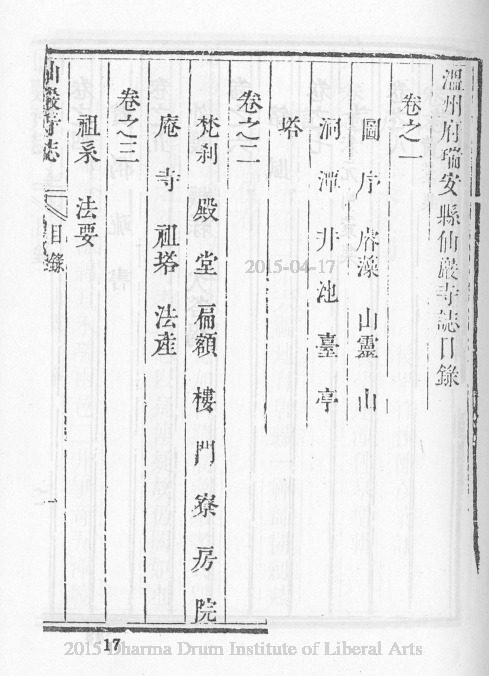 溫州府瑞安縣仙巖寺誌目錄
卷之一
圖 片 宸藻 山靈 山
洞 潭 井 池 臺 亭
塔
卷之二
梵刹 殿 堂 扁額 樓 門 寮 房 院
庵 寺 祖塔 法產
卷之三
祖系 法要
仙巖寺誌 目錄 一
17
2015-04-17
2015 Dharma Drum Institute of Liberal Arts